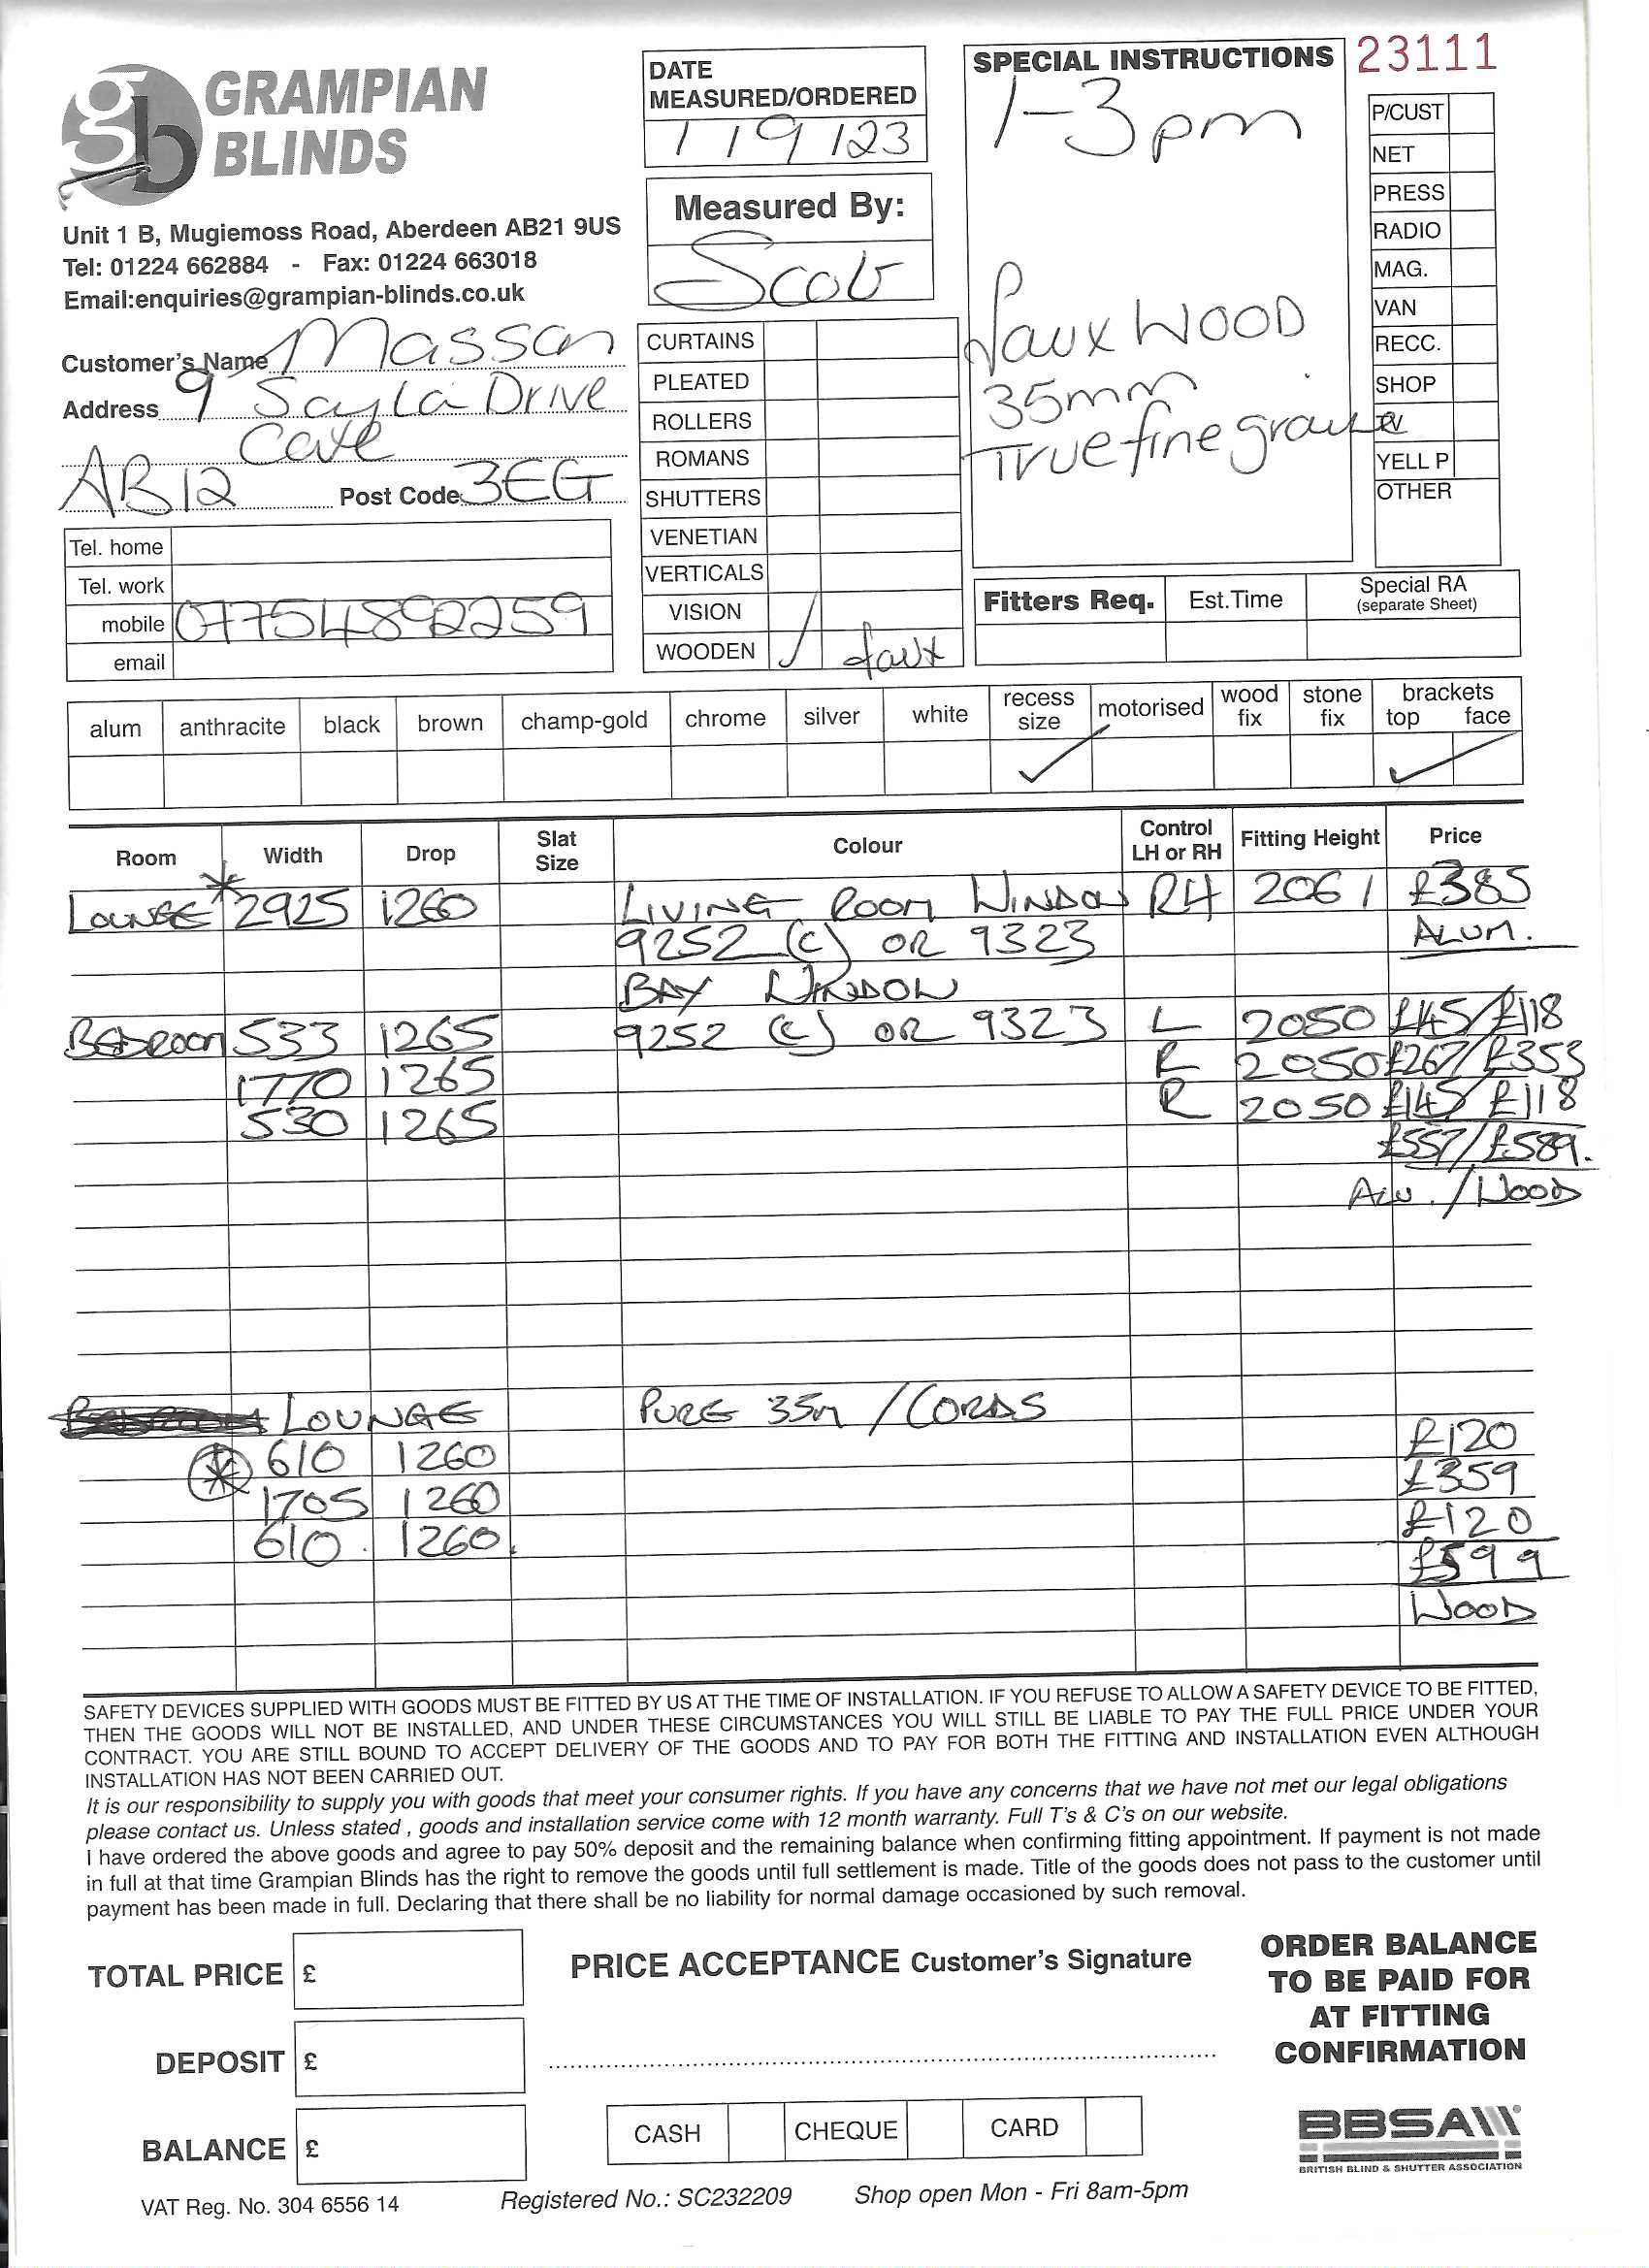 GRAMPIAN
BLINDS
Unit 1 B, Mugiemoss Road, Aberdeen AB21 9US
Tel: 01224 662884 - Fax: 01224 663018
Email:enquiries@grampian-blinds.co.uk
Customer's Name Masson
Address 9 Drive
Cove
AB12 Post Code 3EG
Tel. home
Tel. work
mobile 07754892259
email
DATE
MEASURED/ORDERED
1/9/23
Measured By:
CURTAINS
PLEATED
ROLLERS
ROMANS
SHUTTERS
VENETIAN
VERTICALS
VISION
WOODEN / faux
SPECIAL INSTRUCTIONS
1-3pm
faux WOOD
35mm
True fine
23111
P/CUST
NET
PRESS
RADIO
MAG.
VAN
RECC.
SHOP
YELL P
OTHER
Fitters Req. Est.Time Special RA
(separate Sheet)
alum anthracite black brown champ-gold chrome silver white recess size motorised wood fix stone fix brackets top face
✓ ✓
Room Width Drop Slat Size Colour Control LH or RH Fitting Height Price
LOUNGE * 2925 1260 LIVING ROOM WINDOW RH 2061 £385
9252 (C) OR 9323 ALUM.
BAY WINDOW
BEDROOM 533 1265 9252 (C) OR 9323 L 2050 £145/£118
1770 1265 R 2050 £267/£353
530 1265 R 2050 £145/£118
£557/£589.
ALU. / WOOD
LOUNGE PURE 35m / CORDS
* 610 1260 £120
1705 1260 £359
610 1260 £120
£599
WOOD
SAFETY DEVICES SUPPLIED WITH GOODS MUST BE FITTED BY US AT THE TIME OF INSTALLATION. IF YOU REFUSE TO ALLOW A SAFETY DEVICE TO BE FITTED,
THEN THE GOODS WILL NOT BE INSTALLED, AND UNDER THESE CIRCUMSTANCES YOU WILL STILL BE LIABLE TO PAY THE FULL PRICE UNDER YOUR
CONTRACT. YOU ARE STILL BOUND TO ACCEPT DELIVERY OF THE GOODS AND TO PAY FOR BOTH THE FITTING AND INSTALLATION EVEN ALTHOUGH
INSTALLATION HAS NOT BEEN CARRIED OUT.
It is our responsibility to supply you with goods that meet your consumer rights. If you have any concerns that we have not met our legal obligations
please contact us. Unless stated , goods and installation service come with 12 month warranty. Full T's & C's on our website.
I have ordered the above goods and agree to pay 50% deposit and the remaining balance when confirming fitting appointment. If payment is not made
in full at that time Grampian Blinds has the right to remove the goods until full settlement is made. Title of the goods does not pass to the customer until
payment has been made in full. Declaring that there shall be no liability for normal damage occasioned by such removal.
TOTAL PRICE £
DEPOSIT £
BALANCE £
PRICE ACCEPTANCE Customer's Signature
CASH CHEQUE CARD
ORDER BALANCE
TO BE PAID FOR
AT FITTING
CONFIRMATION
BBSA
BRITISH BLIND & SHUTTER ASSOCIATION
VAT Reg. No. 304 6556 14 Registered No.: SC232209 Shop open Mon - Fri 8am-5pm